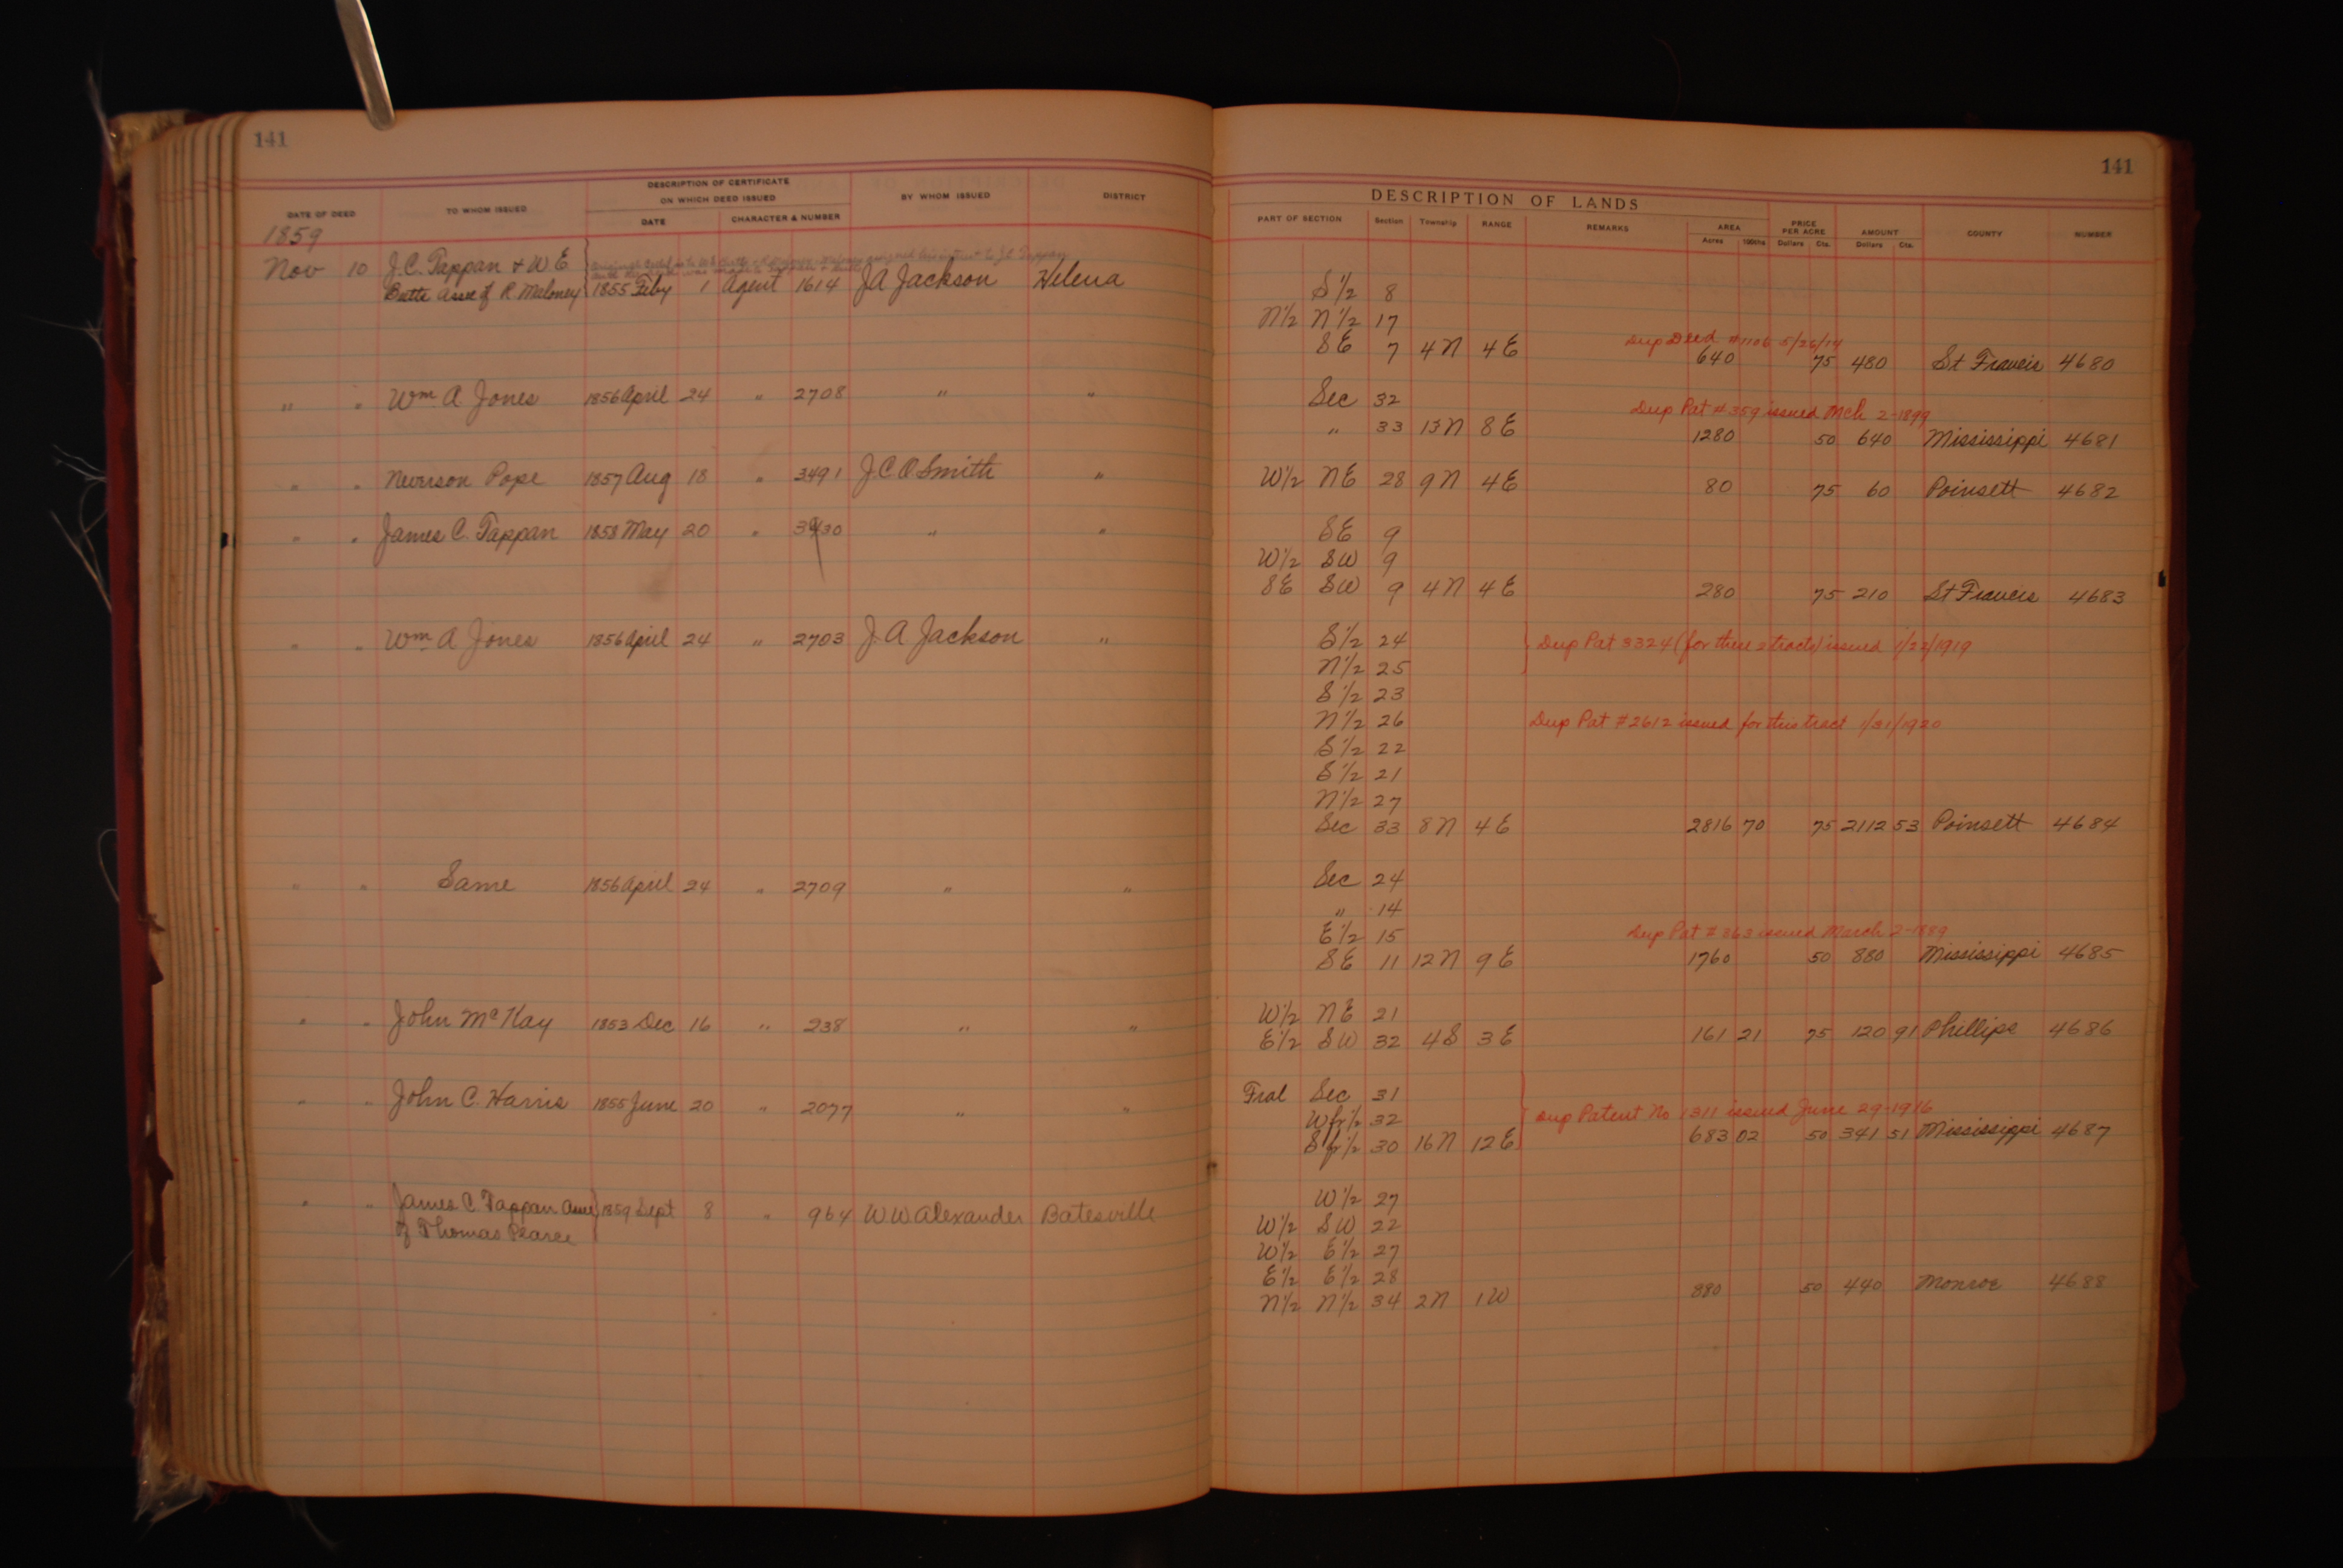 141
DATE OF DEED
TO WHOM ISSUED
DESCRIPTION OF CERTIFICATE
ON WHICH DEED ISSUED
DATE
CHARACTER & NUMBER
BY WHOM ISSUED
DISTRICT
1859
Nov 10 J.C. Tappan & W.E
Butts Assee of R. Maloney 1855 Feby 1 Agent 1614 J A Jackson Helena
" " Wm. A. Jones 1856 April 24 " 2708 " "
" " Neverson Pope 1857 Aug 18 " 3491 J.C.O Smith "
" " James C. Tappan 1858 May 20 " 3930 " "
" " Wm. A Jones 1856 April 24 " 2703 J. A Jackson "
" " Same 1856 April 24 " 2709 " "
" " John McKay 1853 Dec 16 " 238 " "
" " John C. Harris 1855 June 20 " 2077 " "
" " James C. Tappan Assee 1859 Sept 8 " 964 W W Alexander Batesville
of Thomas Pearce
141
DESCRIPTION OF LANDS
PART OF SECTION
Section
Township
RANGE
REMARKS
AREA
Acres 100ths
PRICE
PER ACRE
Dollars Cts.
AMOUNT
Dollars Cts.
COUNTY
NUMBER
S 1/2 8
N 1/2 N 1/2 17
Dup Deed #1106 5/26/14
SE 7 4 N 4 E 640 75 480 St Francis 4680
Sec 32
Dup Pat #359 issued Mch 2-1899
" 33 13 N 8 E 1280 50 640 Mississippi 4681
W 1/2 NE 28 9 N 4 E 80 75 60 Poinsett 4682
SE 9
W 1/2 SW 9
SE SW 9 4 N 4 E 280 75 210 St Francis 4683
S 1/2 24 Dup Pat 3324 (for these 2 tracts) issued 1/22/1919
N 1/2 25
S 1/2 23
N 1/2 26 Dup Pat #2612 issued for this tract 1/31/1920
S 1/2 22
S 1/2 21
N 1/2 27
Sec 33 8 N 4 E 2816 70 75 2112 53 Poinsett 4684
Sec 24
" 14
E 1/2 15 Dup Pat #363 issued March 2-1889
SE 11 12 N 9 E 1760 50 880 Mississippi 4685
W 1/2 NE 21
E 1/2 SW 32 4 S 3 E 161 21 75 120 91 Phillips 4686
Fral Sec 31
W fr 1/2 32 Dup Patent No 1311 issued June 29-1916
S fr 1/2 30 16 N 12 E 683 02 50 341 51 Mississippi 4687
W 1/2 27
W 1/2 SW 22
W 1/2 E 1/2 27
E 1/2 E 1/2 28
N 1/2 N 1/2 34 2 N 1 W 880 50 440 Monroe 4688